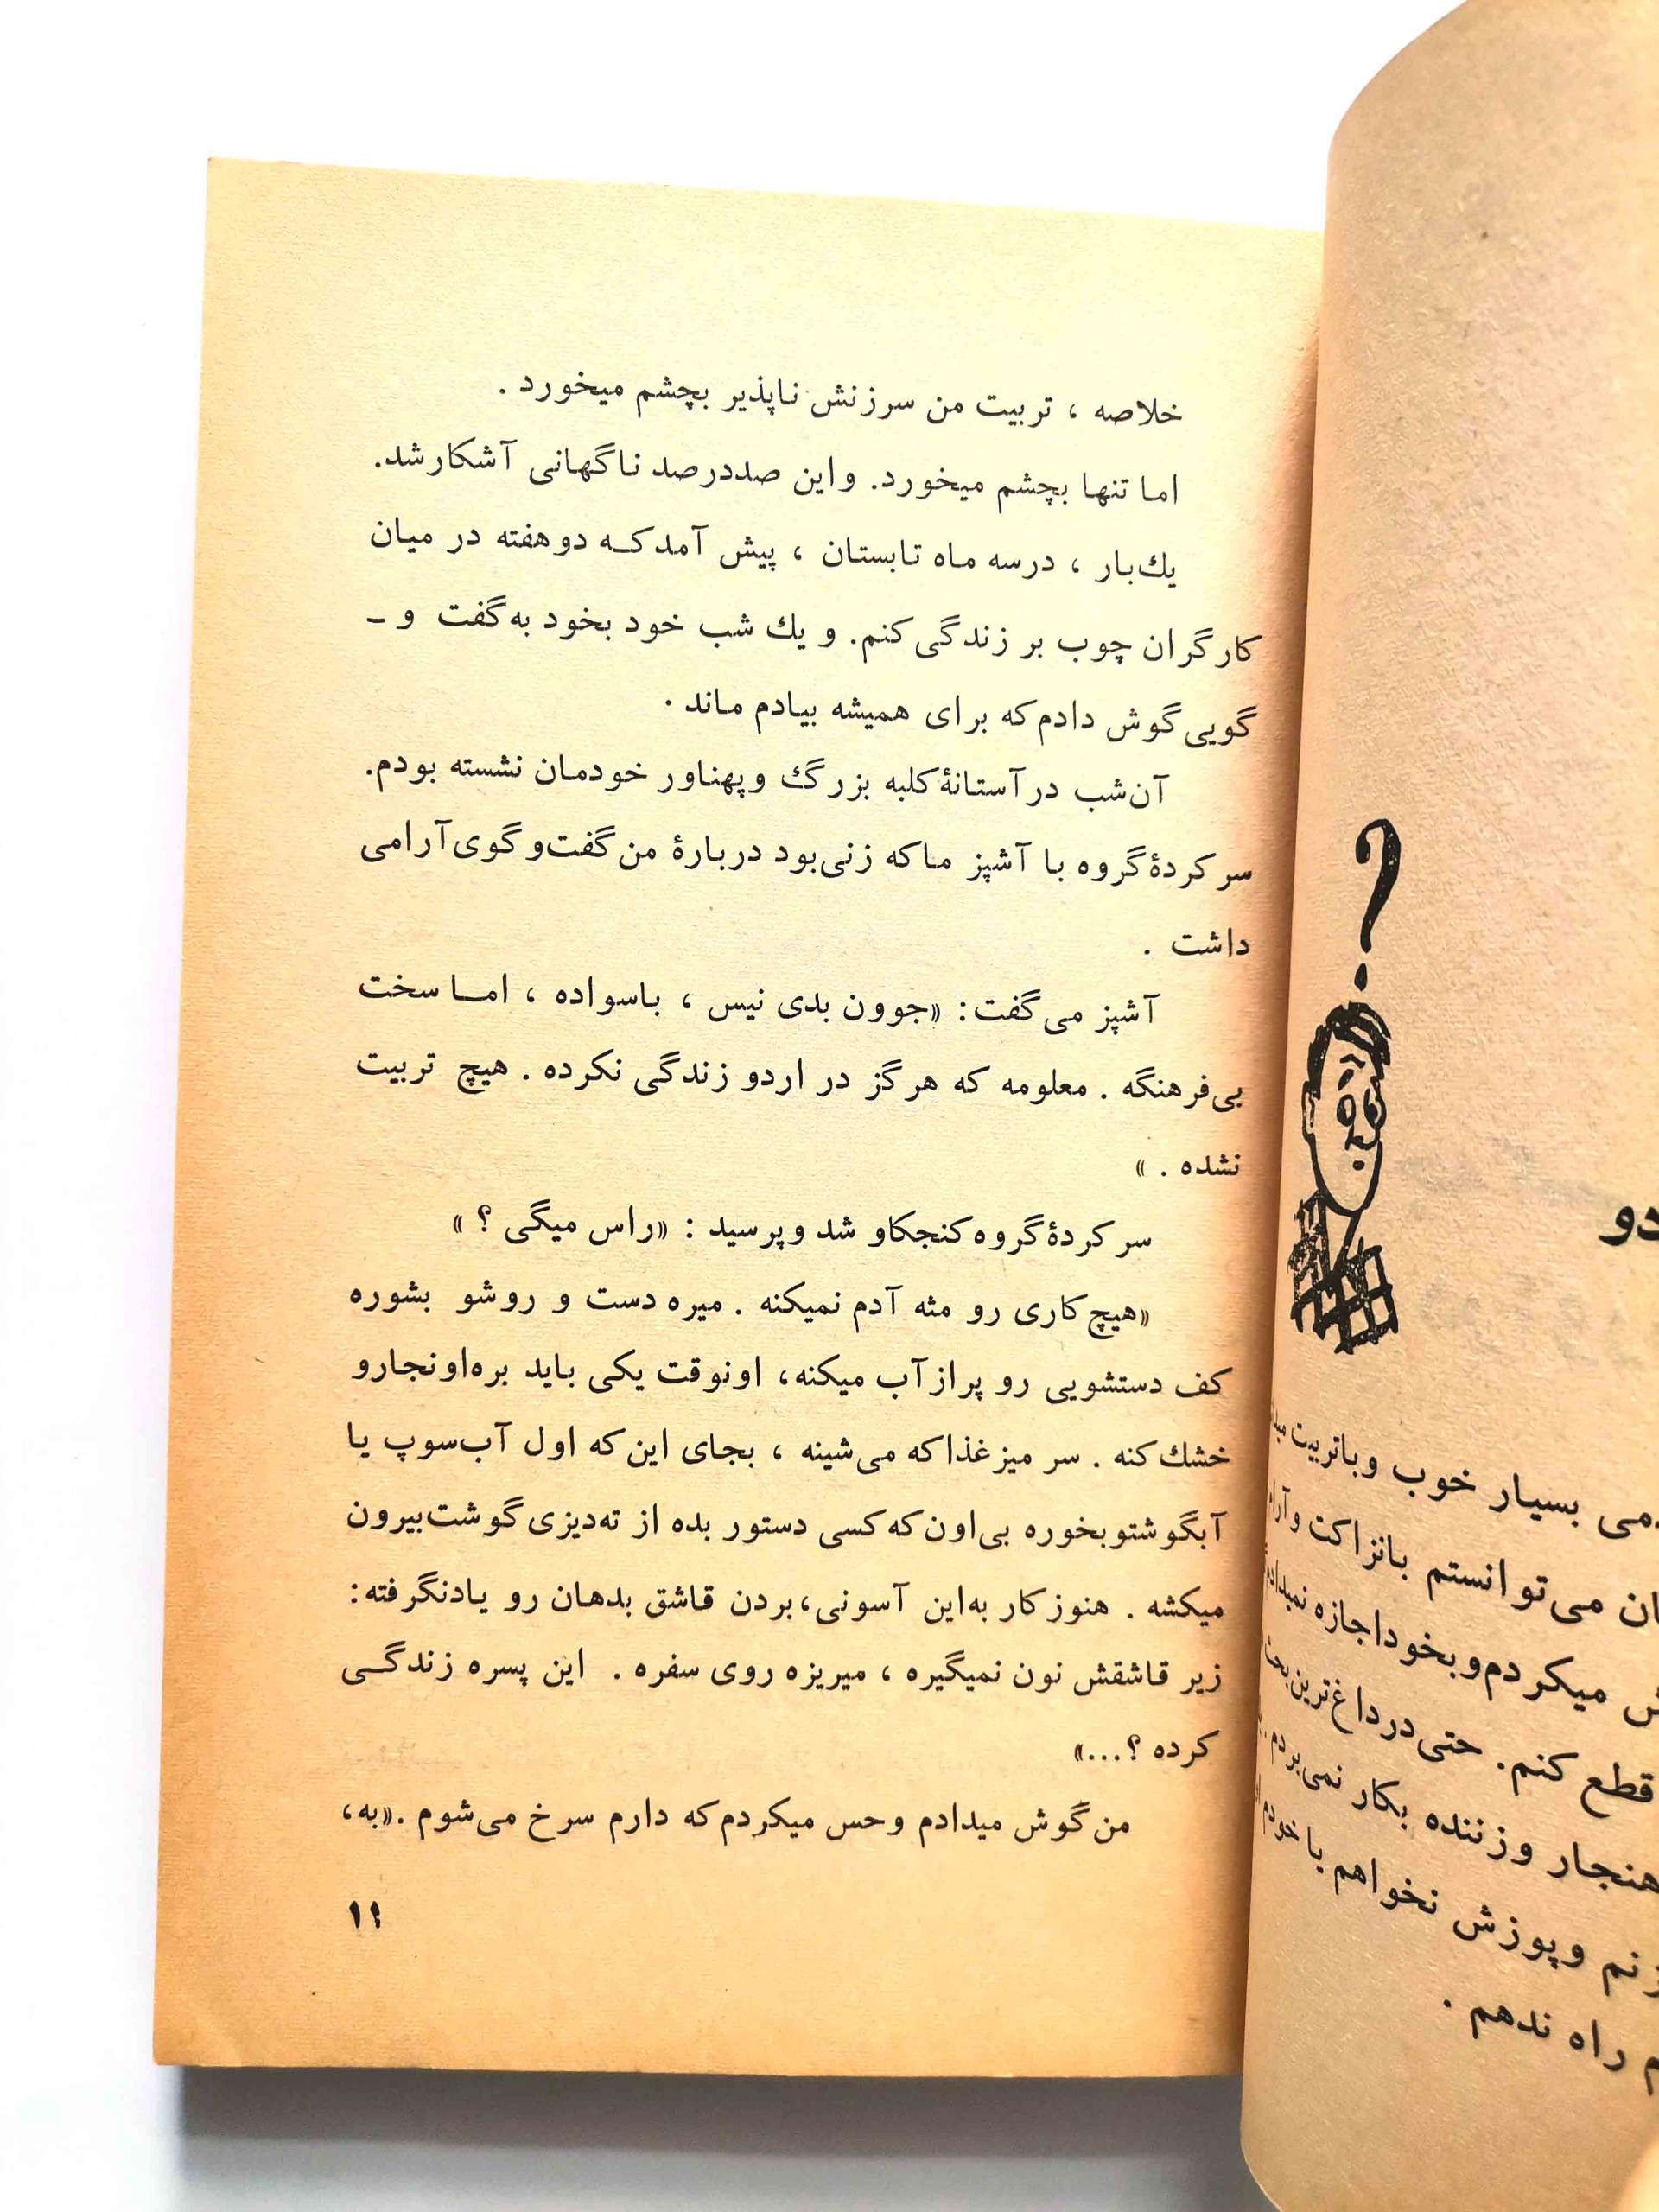 دو
می بسیار خوب و باتربیت
ان می‌توانستم بانزاکت و
میکردم و بخود اجازه
قطع کنم. حتی در داغ‌ترین بحث
هنجار و زننده بکار نمی‌بردم.
زنم و پوزش نخواهم با خودم
راه ندهم .
خلاصه ، تربیت من سرزنش ناپذیر بچشم میخورد .
اما تنها بچشم میخورد. و این صددرصد ناگهانی آشکار شد.
یك‌بار ، در سه ماه تابستان ، پیش آمد کــه دو هفته در میان
کارگران چوب بر زندگی کنم. و یك شب خود بخود به گفت و ـ
گویی گوش دادم که برای همیشه بیادم ماند .
آن‌شب در آستانهٔ کلبه بزرگ و پهناور خودمان نشسته بودم.
سرکردهٔ گروه با آشپز ما که زنی بود دربارهٔ من گفت‌و گوی آرامی
داشت .
آشپز می‌گفت: «جوون بدی نیس ، باسواده ، امــا سخت
بی‌فرهنگه . معلومه که هرگز در اردو زندگی نکرده . هیچ تربیت
نشده . »
سرکردهٔ گروه کنجکاو شد و پرسید : «راس میگی ؟ »
«هیچ کاری رو مثه آدم نمیکنه . میره دست و روشو بشوره
کف دستشویی رو پر از آب میکنه، اونوقت یکی باید بره اونجارو
خشك کنه . سر میز غذا که می‌شینه ، بجای این که اول آب‌سوپ یا
آبگوشتو بخوره بی‌اون که کسی دستور بده از ته‌دیزی گوشت بیرون
میکشه . هنوز کار به‌این آسونی، بردن قاشق بدهان رو یادنگرفته:
زیر قاشقش نون نمیگیره ، میریزه روی سفره . این پسره زندگــی
کرده ؟...»
من گوش میدادم و حس میکردم که دارم سرخ می‌شوم .«به،
۱۱